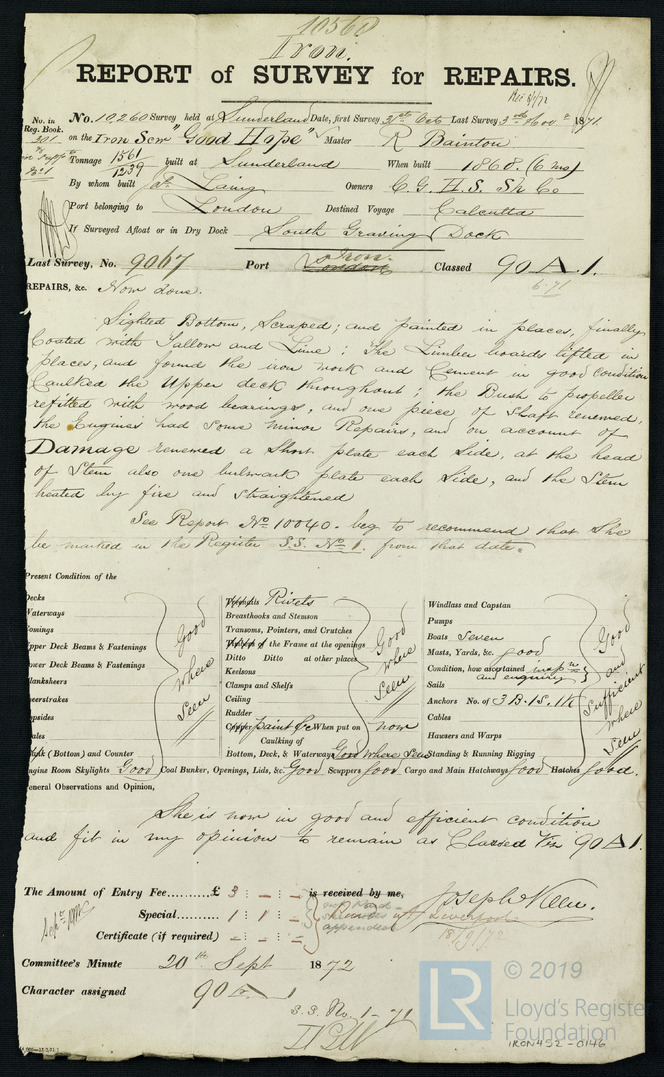 10560
Iron.
REPORT of SURVEY for REPAIRS.
Rec 8/1/72
No. in
Reg. Book.
No. 10260 Survey held at Sunderland Date, first Survey 31st Oct Last Survey 3rd Novr 1871
on the Iron Scw "Good Hope" Master R Bainton
Tonnage 1561 / 1239 built at Sunderland When built 1868. (6 mo)
By whom built Jas. Laing Owners C. G. H. S. Sh Co
Port belonging to London Destined Voyage Calcutta
If Surveyed Afloat or in Dry Dock South Graving Dock
Last Survey, No. 9067 Port London Iron. Classed 90 A. 1.
6.71
REPAIRS, &c. Now done.
Sighted Bottom, Scraped; and painted in places, finally
Coated with Tallow and Lime; The Limber boards lifted in
places, and found the iron work and Cement in good condition
Caulked the Upper deck throughout; the Bush to propeller
refitted with wood bearings, and one piece of Shaft renewed,
the Engines had some minor Repairs, and on account of
Damage renewed a Short plate each Side, at the head
of Stem also one bulwark plate each Side, and the Stem
heated by fire and straightened
See Report No 10040. beg to recommend that She
be marked in the Register S.S. No 1. from that date.
Present Condition of the
Decks
Waterways
Comings
Upper Deck Beams & Fastenings
Lower Deck Beams & Fastenings
Planksheers
Sheerstrakes
Topsides
Wales
(Bottom) and Counter
Good
where
Seen
Rivets
Breasthooks and Stemson
Transoms, Pointers, and Crutches
of the Frame at the openings
Ditto Ditto at other places
Keelsons
Clamps and Shelfs
Ceiling
Rudder
Copper paint &c When put on now
Caulking of
Bottom, Deck, & Waterways Good where Seen
Good
where
Seen
Windlass and Capstan
Pumps
Boats Seven
Masts, Yards, &c. Good
Condition, how ascertained inspn
and enquiry
Sails
Anchors No. of 3 B. 1 S. 1 K
Cables
Hawsers and Warps
Standing & Running Rigging
Good
and
Sufficient
where
Seen
Engine Room Skylights Good Coal Bunker, Openings, Lids, &c. Good Scuppers Good Cargo and Main Hatchways Good Hatches Good.
General Observations and Opinion,
She is now in good and efficient condition
and fit in my opinion to remain as Classed Viz 90 A 1.
The Amount of Entry Fee.......... £ 3 : - : - is received by me,
Special .......... 1 : 1 : -
Certificate (if required) - : - : -
Joseph Keen.
Liverpool
18/9/72
Committee's Minute 20th Sept 1872
Character assigned 90 A 1
S.S. No. 1-71
© 2019
LR
Lloyd's Register
Foundation
IRON452-0146